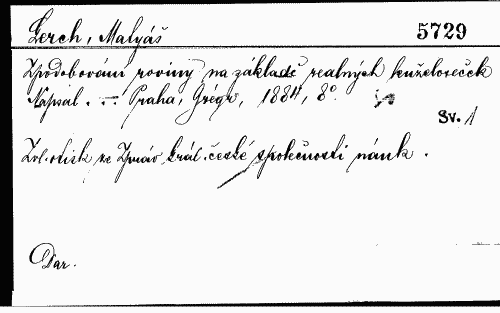 Lerch, Matyáš 5729
Zpodobování roviny na základě realných kuželoseček
Napsal . — Praha, Grégr, 1884, 8°.
Sv. 1
Zvl. otisk ze Zpráv král. české společnosti náuk.
Dar.